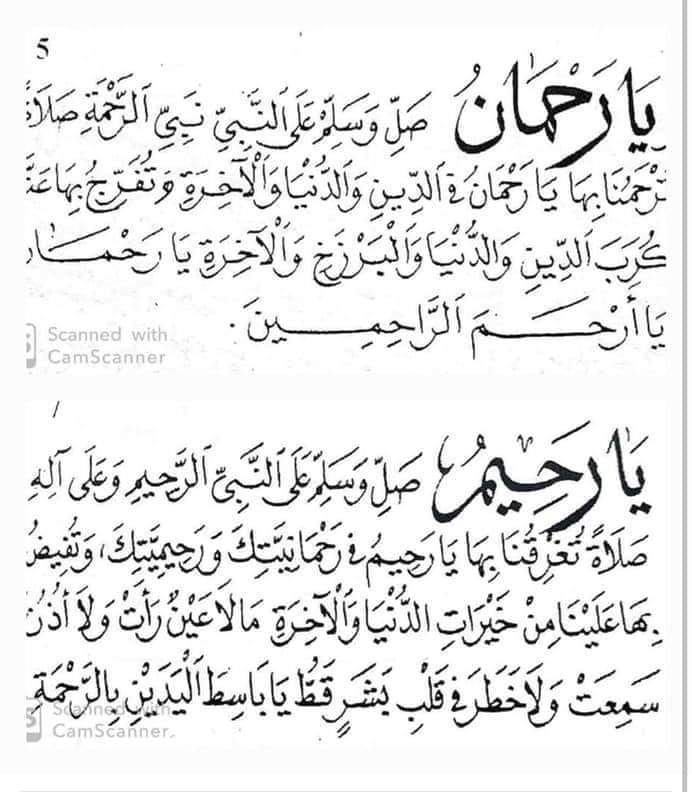 5
يَا رَحْمَان صَلِّ وَسَلِّمْ عَلَى النَّبِيِّ نَبِيِّ الرَّحْمَةِ صَلَاةً
تَرْحَمُنَا بِهَا يَا رَحْمَانُ فِي الدِّينِ وَالدُّنْيَا وَالْآخِرَةِ وَتُفَرِّجُ بِهَا عَنَّا
كُرَبَ الدِّينِ وَالدُّنْيَا وَالْبَرْزَخِ وَالْآخِرَةِ يَا رَحْمَان
يَا أَرْحَمَ الرَّاحِمِينَ .
Scanned with
CamScanner
يَا رَحِيمُ صَلِّ وَسَلِّمْ عَلَى النَّبِيِّ الرَّحِيمِ وَعَلَى آلِهِ
صَلَاةً تُغْرِقُنَا بِهَا يَا رَحِيمُ فِي رَحْمَانِيَّتِكَ وَرَحِيمِيَّتِكَ، وَتُفِيضُ
بِهَا عَلَيْنَا مِنْ خَيْرَاتِ الدُّنْيَا وَالْآخِرَةِ مَا لَا عَيْنٌ رَأَتْ وَلَا أُذُنٌ
سَمِعَتْ وَلَا خَطَرَ فِي قَلْبِ بَشَرٍ قَطُّ يَا بَاسِطَ الْيَدَيْنِ بِالرَّحْمَةِ
Scanned with
CamScanner